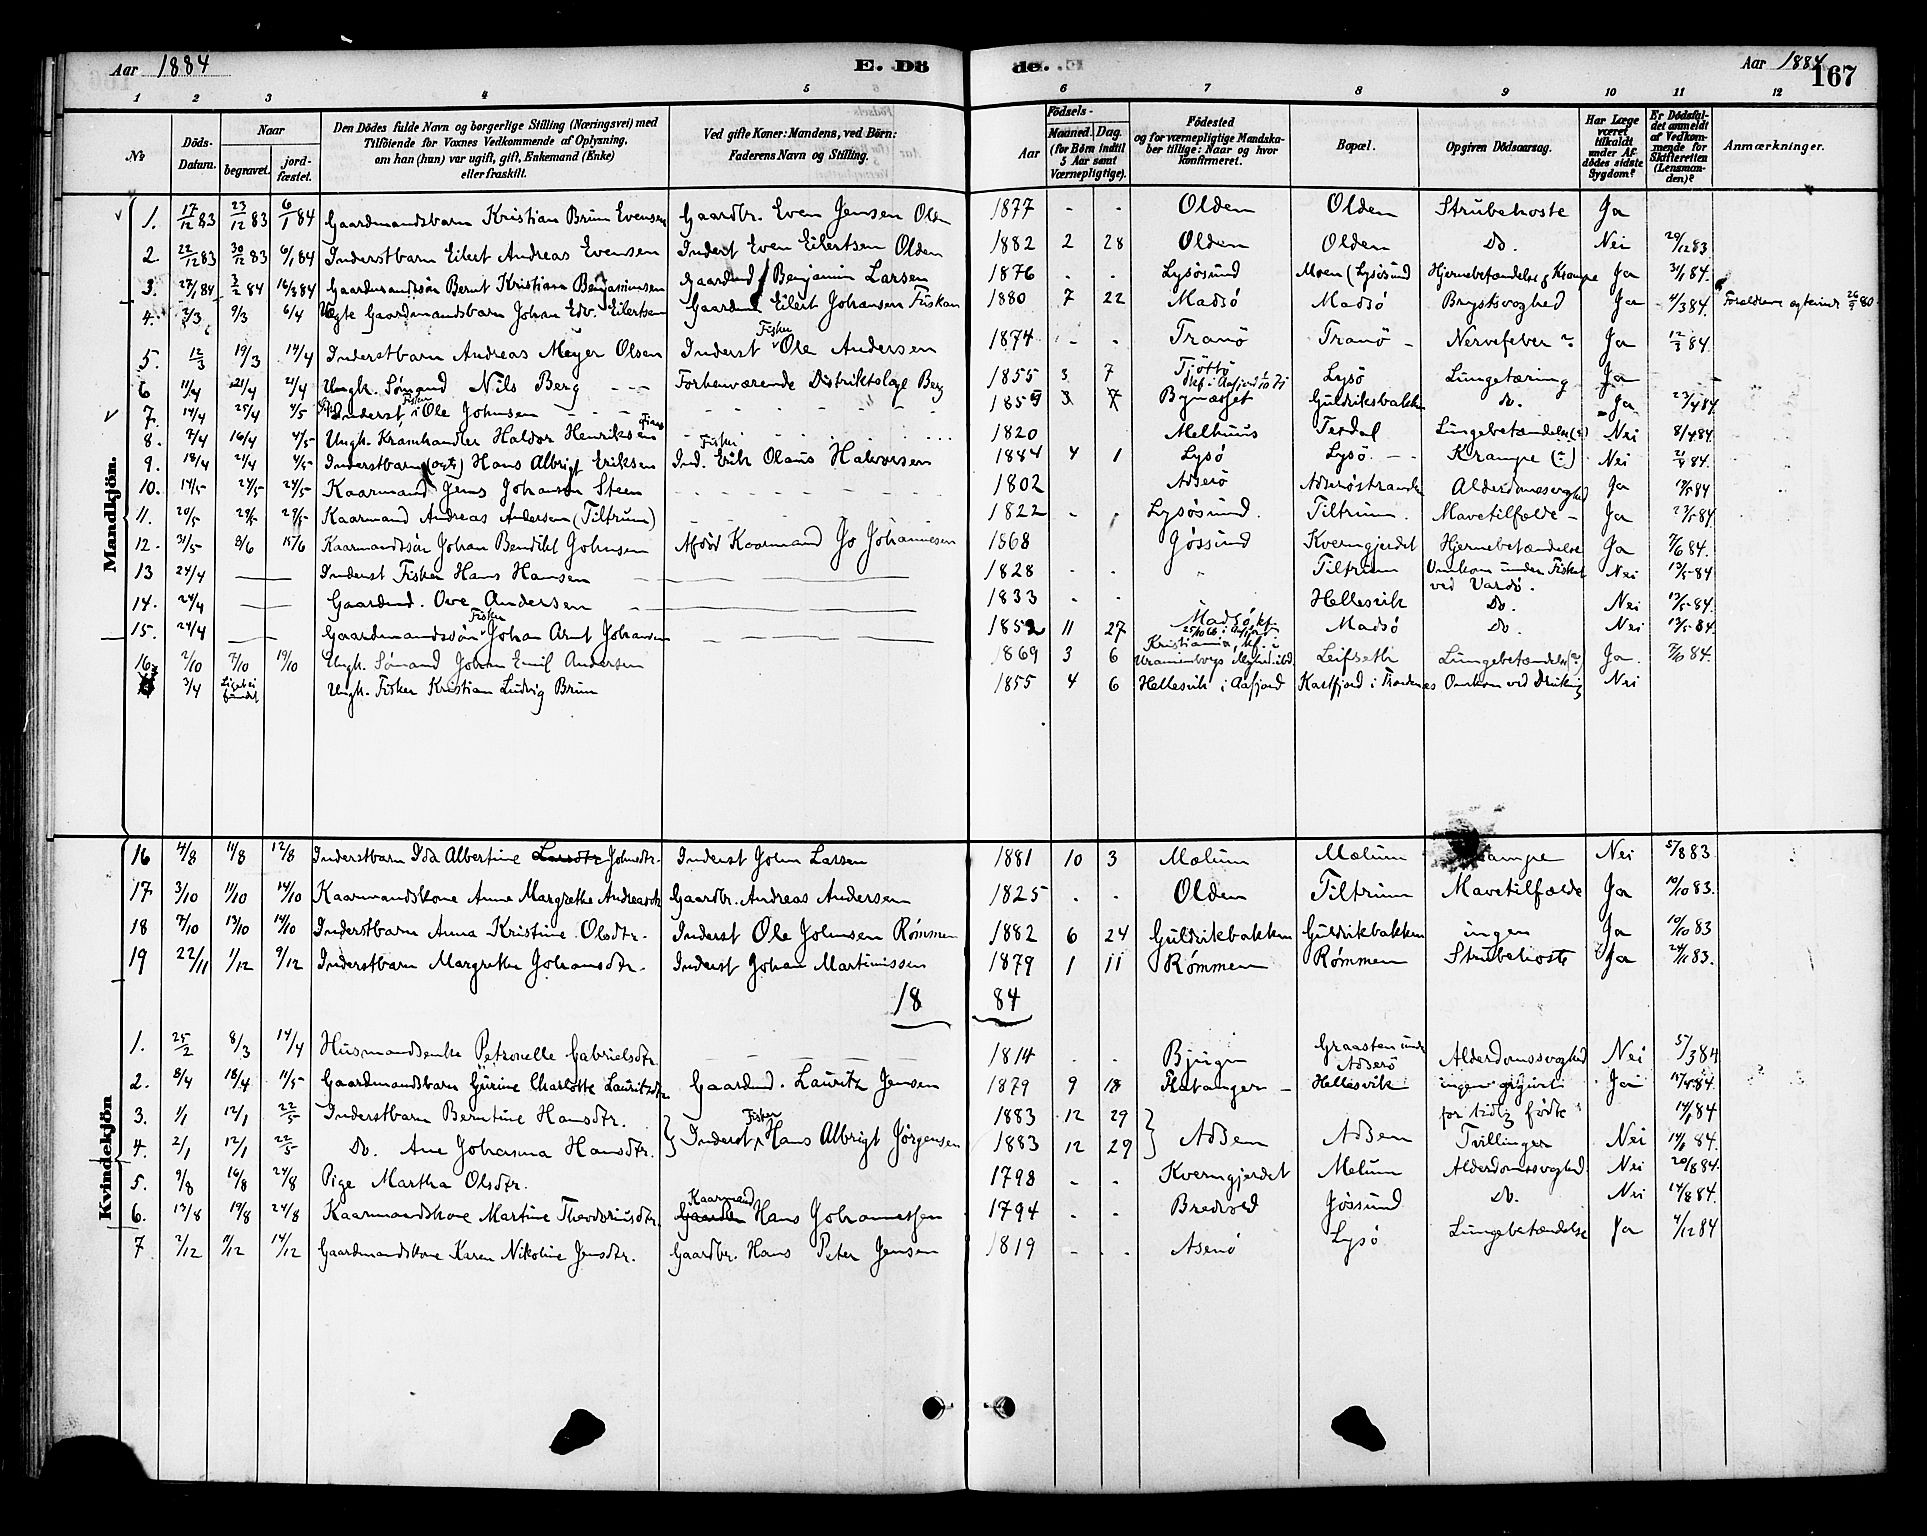 Aar 1884 E. Dö de. Aar 1884 167
1 2 3 4 5 6 7 8 9 10 11 12
No
Döds-Datum.
Naar
begravet.
jord-fæstet.
Den Dödes fulde Navn og borgerlige Stilling (Næringsvei) med
Tilföiende for Voxnes Vedkommende af Oplysning,
om han (hun) var ugift, gift, Enkemand (Enke)
eller fraskilt.
Ved gifte Koner: Mandens, ved Börn:
Faderens Navn og Stilling.
Födsels-
Aar
Maaned. Dag.
(for Börn indtil
5 Aar samt
Værnepligtige).
Födested
og for værnepligtige Mandska-
ber tillige: Naar og hvor
konfirmeret.
Bopæl.
Opgiven Dödsaarsag.
Har Læge
været
tilkaldt
under Af-
dödes sidste
Sygdom?
Er Dödsfal-
det anmeldt
af Vedkom-
mende for
Skifteretten
(Lensman-
den)?
Anmærkninger.
Mandkjön.
1. 17/12 83 23/12 83 6/1 84 Gaardmandsbarn Kristian Brun Evensen Gaardbr. Even Jensen Olden 1877 - - Olden Olden Strubehoste Ja
2 22/12 83 30/12 83 6/1 84 Inderstbarn Eilert Andreas Evensen Inderst Even Eilertsen Olden 1882 2 28 Olden Olden Do. Nei 29/12 83
3. 27/1 84 3/2 84 16/3 84 Gaardmandssön Bernt Kristian Benjaminsen Gaardmd Benjamin Larsen 1876 . . Lysösund Moen (Lysösund Hjernebetændelse & Krampe Ja 31/1 84.
4. 2/3 9/3 6/4 Uegte Gaardmandsbarn Johan Edv. Eilertsen Gaardm Eilert Johansen Fiskan 1880 7 22 Madsö Madsö Brystsvaghed Ja 4/3 84.
5. 12/3 19/3 14/4 Inderstbarn Andreas Meyer Olsen Inderst Fisker Ole Andersen 1874 - . Tranö Tranö - Nervefeber ? Ja 12/3 84.
6 11/4 21/4 21/4 Ungk. Sömand Nils Berg - - - Forhenværende Distriktslæge Berg 1855 3 7 Tjöttö Lysö Lungetæring Ja -
7. 14/4 25/4 4/5 Inderst, Fisker Ole Johnsen - - - 1859 Bynæsset Guldriksbakken Do. Ja 23/4 84.
8. 7/4 16/4 4/5 Ungk. Kramhandler Haldor Henriksen 1820 Melhuus Terdal Lungebetændelse (?) Nei 8/4 84.
9. 18/4 21/4 4/5 Inderstbarn (ægte) Hans Albrigt Eriksen Ind. Fisker Erik Olaus Halvorsen 1884 4 1 Lysö Lysö. - - Krampe (?) Nei 21/4 84.
10. 14/5 24/5 24/5 Kaarmand Jens Johansen Steen 1802 Adserö Adseröstranden Alderdomssvaghed Ja 19/5 84
11. 20/5 29/5 29/5 Kaarmand Andreas Andersen (Tiltrum) 1822 - . Lysösund. Tiltrum. Mavetilfælde - Ja 23/5 84.
12. 31/5 8/6 15/6 Kaarmandssön Johan Bendikt Johnsen Aföd Kaarmand Jo Johannesen 1868 Gössund Kverngjerdet Hjernebetændelse Ja 7/6 84.
13 24/4 — Inderst Fisker Hans Hansen 1828 . . Tiltrum Omkom under Fisket Nei 13/5 84
ved Vardö.
14. 24/4 — Gaardmd. Ove Andersen 1833 . . Hellesvik Do. Nei 13/5 84.
15. 24/4 — Gaardmandssön Fisker Johan Arnt Johansen 1852 11 27 Madsö kf. Madsö Do. Nei 13/5 84.
16 2/10 7/10 19/10 Ungk. Sömand Johan Emil Andersen 1869 3 6 Kristiania, kf. i Leifseth Lungebetændelse(?) Ja.
3/4 Ungk. Fisker Kristian Ludvig Brun 1855 4 6 Hellesvik i Aafjord Nei
Kvindekjön
16 4/8 11/8 12/8 Inderstbarn Ida Albertine Larsdtr Johnsdtr. Inderst John Larsen 1881 10 3 Mælum Mælum Krampe Nei 5/8 83
17 3/10 11/10 14/10 Kaarmandskone Anne Margrethe Andreasdtr Gaardbr. Andreas Andersen 1825 . . Olden Tiltrum Mavetilfælde Ja 10/10 83.
18 7/10 13/10 14/10 Inderstbarn Anna Kristine Olsdtr. Inderst Ole Johnsen Römmen 1882 6 24 Guldrikbakken Guldrikbakken ingen Ja 10/10 83
19 22/11 1/12 9/12 Inderstbarn Margrethe Johansdtr. Inderst Johan Martinissen 1879 1 11 Römmen Römmen Strubehoste Ja 24/11 83.
18 84
1. 25/2 8/3 14/4 Husmandsenke Petronelle Gabrielsdtr 1814 . . Bjugn Graasten under Adserö Alderdomssvaghed Nei 5/3 84
2. 8/4 18/4 11/5 Gaardmandsbarn Gurine Charlotte Lauritzdtr Gaardmd. Lauritz Jensen 1879 9 18 Flatanger - Hellesvik ingen opgivet Ja
3. 1/1 12/1 22/5 Inderstbarn Berntine Hansdtr. Inderst, Fisker Hans Albrigt Jörgensen 1883 12 29 Adsen Adsen for tidlig födte 14/1 84
4. 2/1 12/1 22/5 Do. Ane Johanna Hansdtr. 1883 12 29 Tvillinger Nei 14/1 84.
5. 9/8 16/8 24/8 Pige Martha Olsdtr. 1798 - . Kverngjerdet Melum Alderdomssvaghed. Nei 20/8 84.
6. 13/8 19/8 24/8 Kaarmandskone Martine Theodoriusdtr. Kaarmand Hans Johannessen 1794 . . Bredvold Jössund Do. Nei 14/8 84.
7 2/12 9/12 14/12 Gaardmandskone Karen Nikoline Jensdtr. Gaardbr. Hans Peter Jensen 1819 - . Asenö Lysö Lungebetændelse Ja 4/12 84